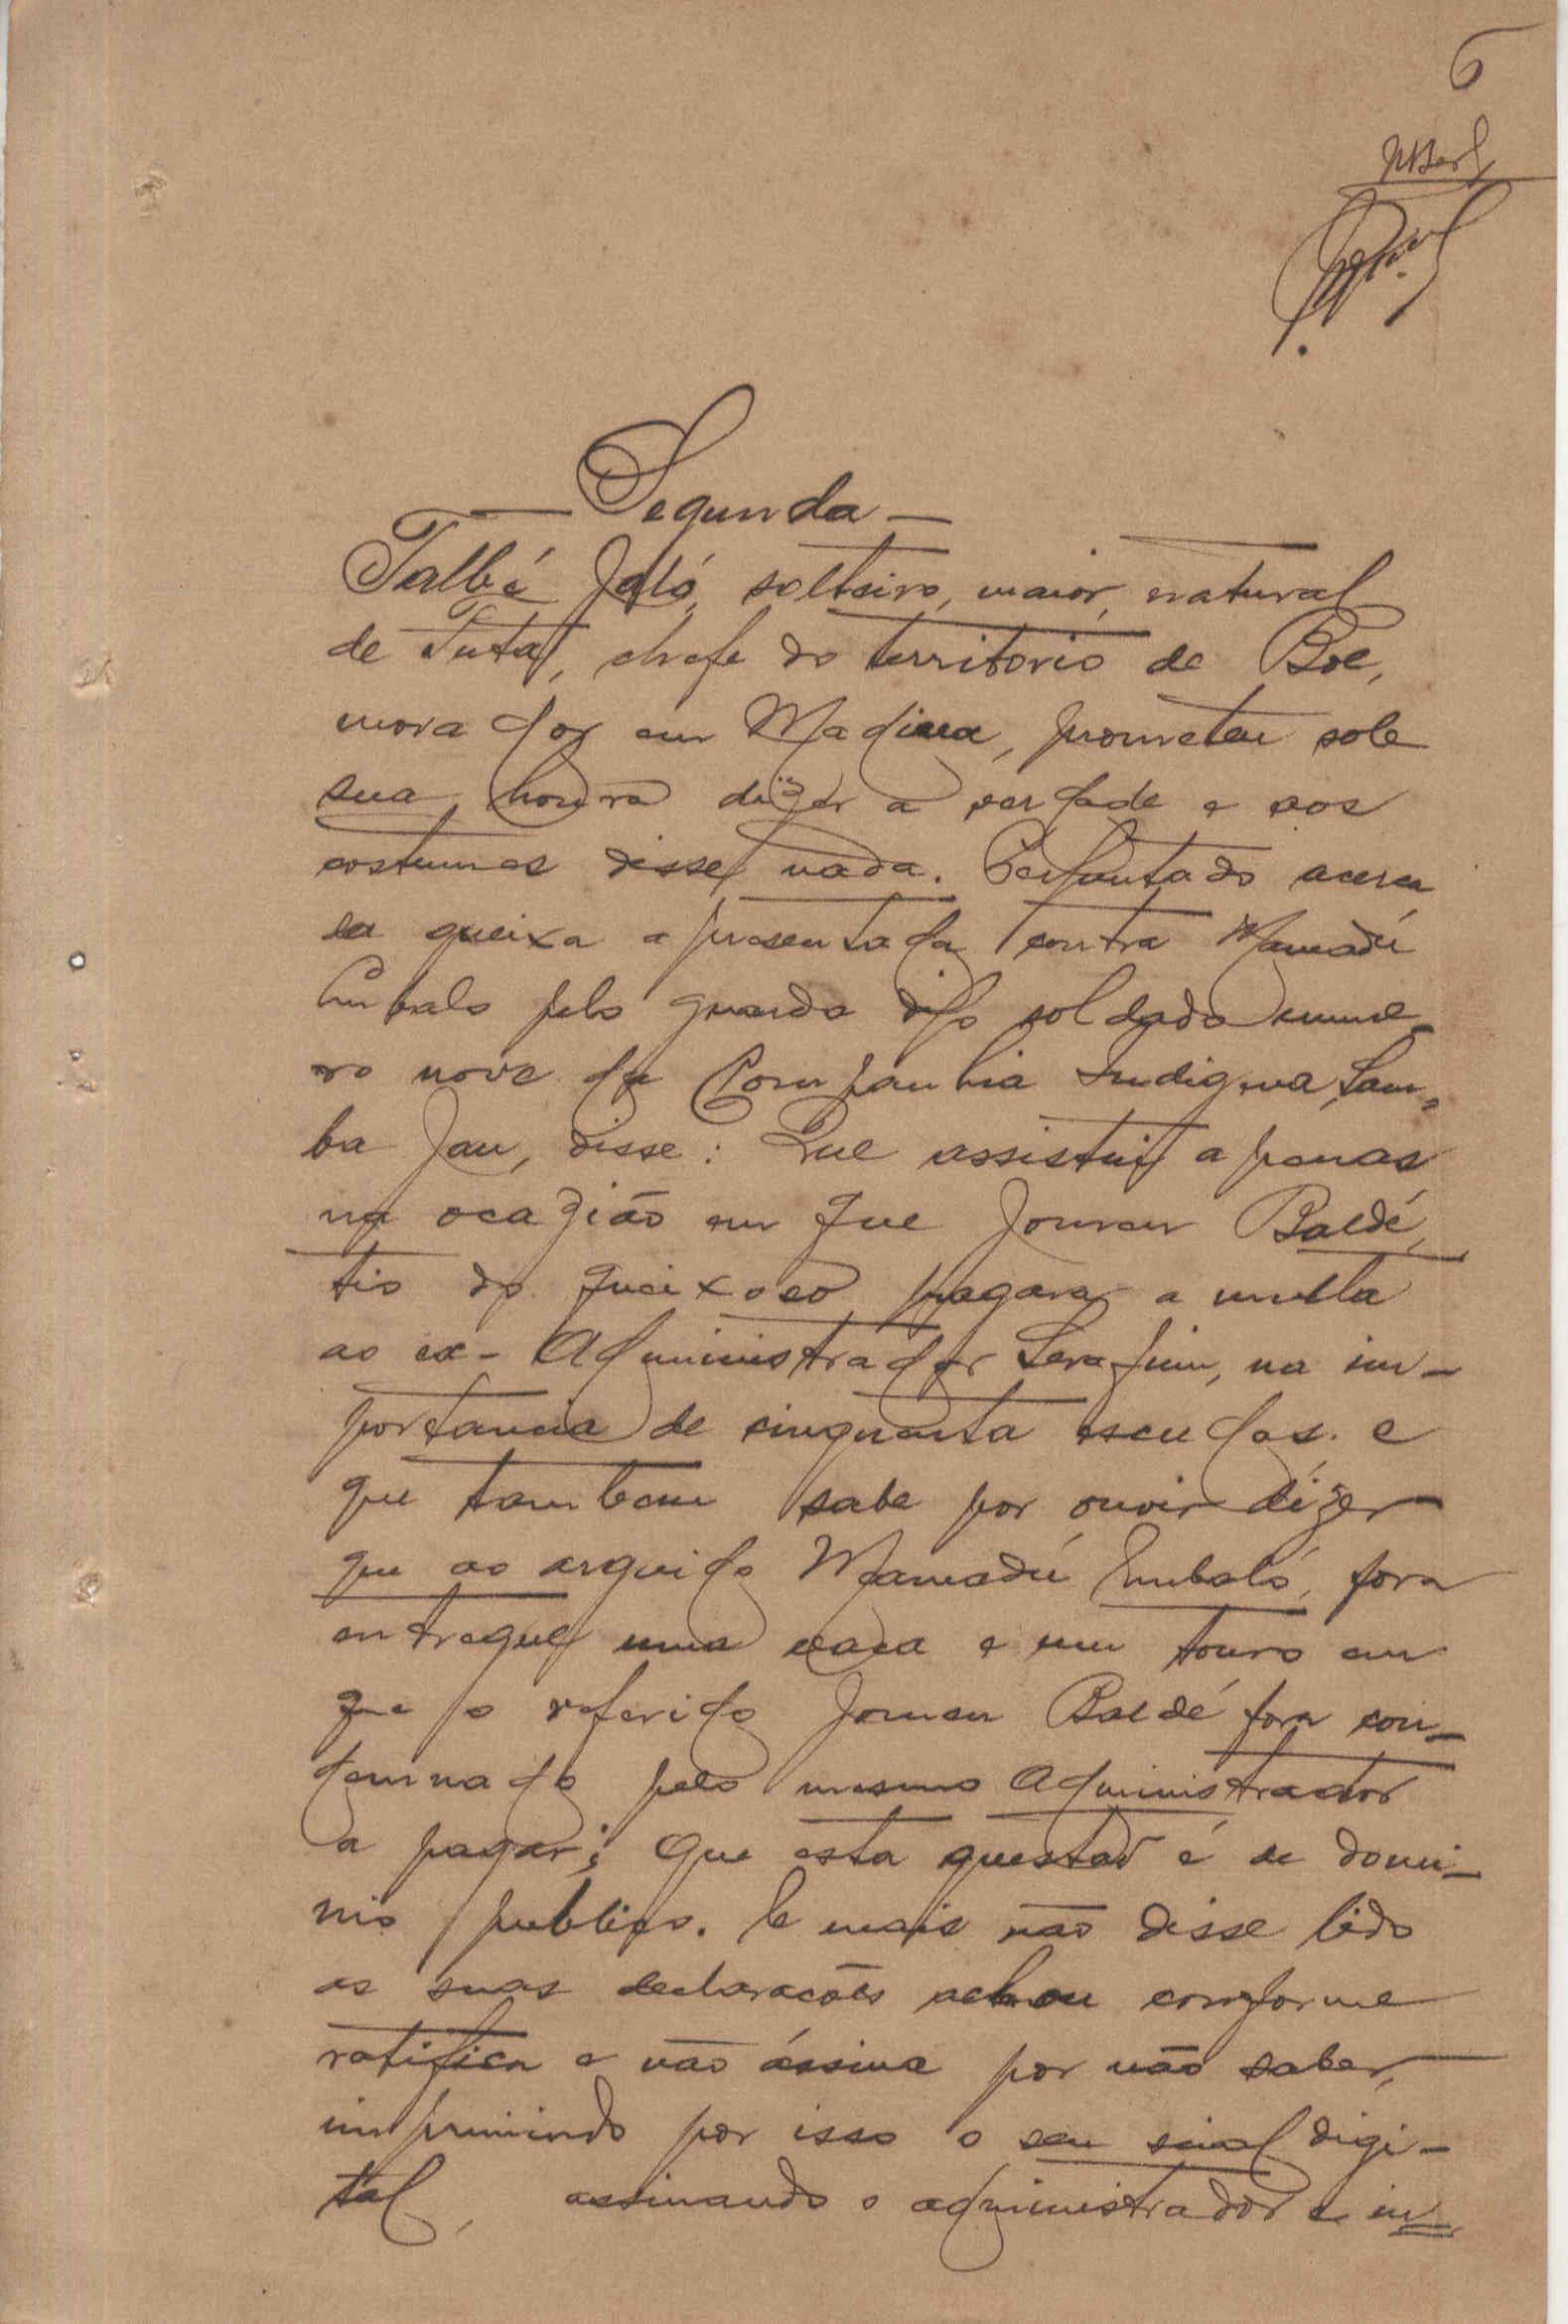 6
— Segunda —
Talbé Jaló, solteiro, maior, natural
de Futa, chefe do territorio de Boe,
morador em Madina, prometeu sob
sua honra dizer a verdade e aos
costumes disse nada. Perguntado acerca
da queixa apresentada contra Mamadú
Embalo pelo guarda digo soldado nume-
ro nove da Companhia Indigena, Sam-
ba Jau, disse: Que assistiu apenas
na ocazião em que Joman Baldé,
tio do queixoso pagara a multa
ao ex-Administrador Serafim, na im-
portancia de cinquenta escudos. e
que tambem sabe por ouvir dizer
que ao arguido Mamadú Embaló, fora
entregue uma vaca e um touro em
que o referido Joman Baldé fora con-
demnado pelo mesmo Administrador
a pagar; Que esta questão é de domi-
nio publico. E mais não disse lido
as suas declarações achou conforme
ratifica e não assina por não saber,
imprimindo por isso o seu sinal digi-
tal, assinando o administrador e in-